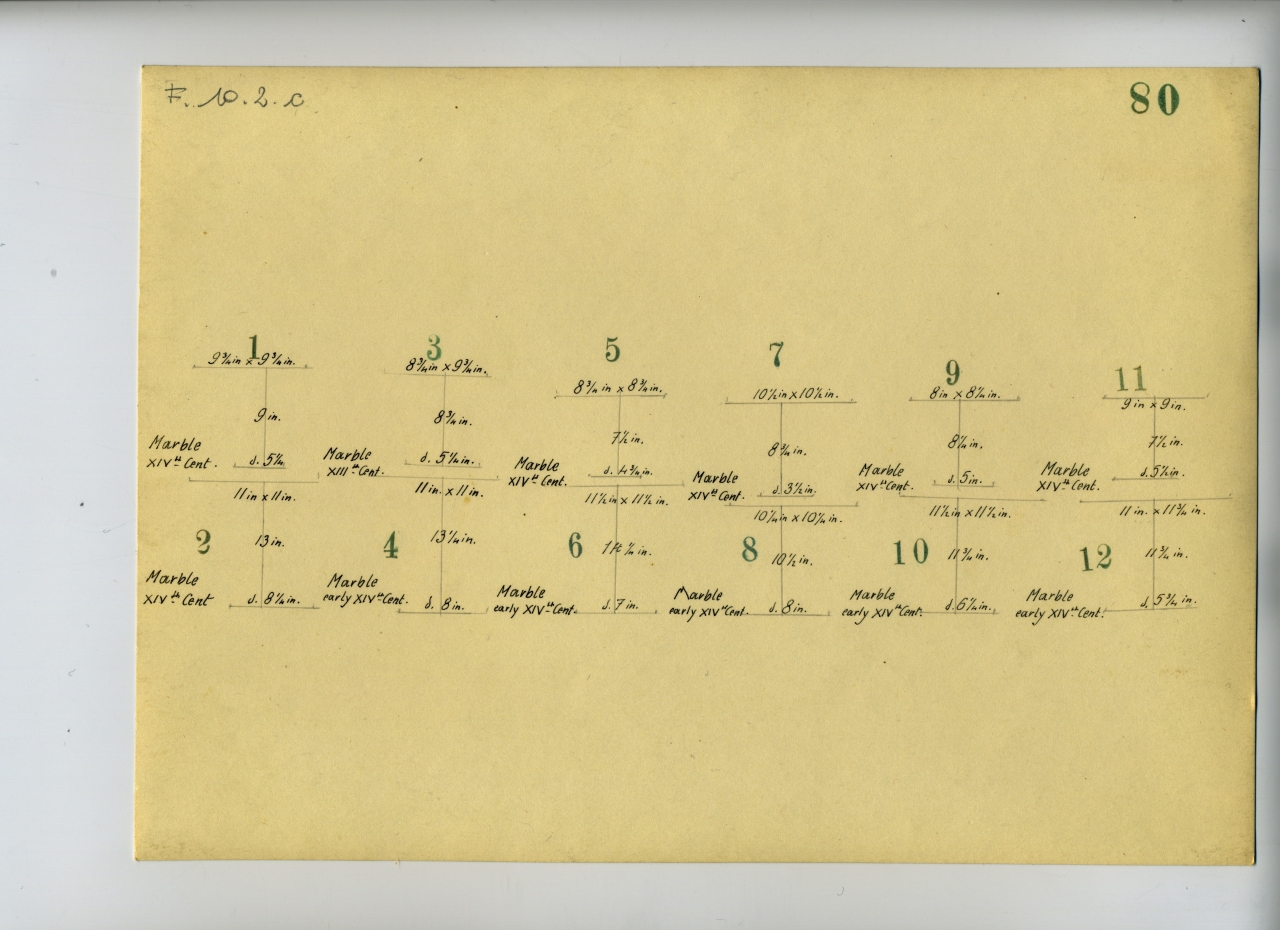 F. 10. 2. c
80
1
9¾in x 9¾in.
9 in.
Marble
XIVth Cent.
d. 5¼
11in x 11in.
2
13 in.
Marble
XIVth Cent
d. 8¼in.
3
8¾in x 9¾in.
8¾in.
Marble
XIIIth Cent.
d. 5¼in.
11in. x 11in.
4
13¼in.
Marble
early XIVth Cent.
d. 8in.
5
8¾in x 8¾in.
7½in.
Marble
XIVth Cent.
d. 4¾in.
11½in x 11½in.
6
1ft ¼in.
Marble
early XIVth Cent.
d. 7in.
7
10½in x 10½in.
8¾in.
Marble
XIVth Cent.
d. 3½in.
10¼in x 10¼in.
8
10½in.
Marble
early XIVth Cent.
d. 8in.
9
8in x 8¼in.
8¼in.
Marble
XIVth Cent.
d. 5in.
11½in x 11½in.
10
11¾in.
Marble
early XIVth Cent.
d. 6¼in.
11
9in x 9in.
7½in.
Marble
XIVth Cent.
d. 5½in.
11in. x 11¾in.
12
11¾in.
Marble
early XIVth Cent.
d. 5¾in.